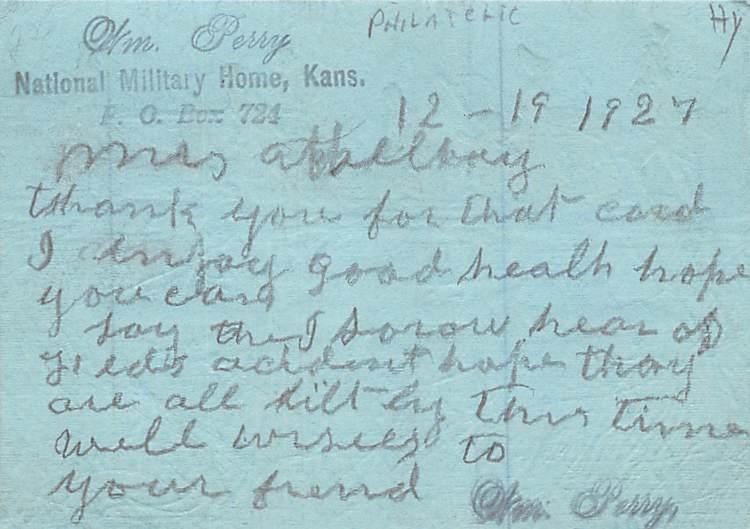 Wm. Perry
PHILATELIC
Hy
National Military Home, Kans.
P. O. Box 724
12 - 19 1927
mrs
thank you for that card
I injoy good health hope
you can
say the I sorow hear of
acident hope thay
are all by this time
well wishes to
your frend Wm. Perry